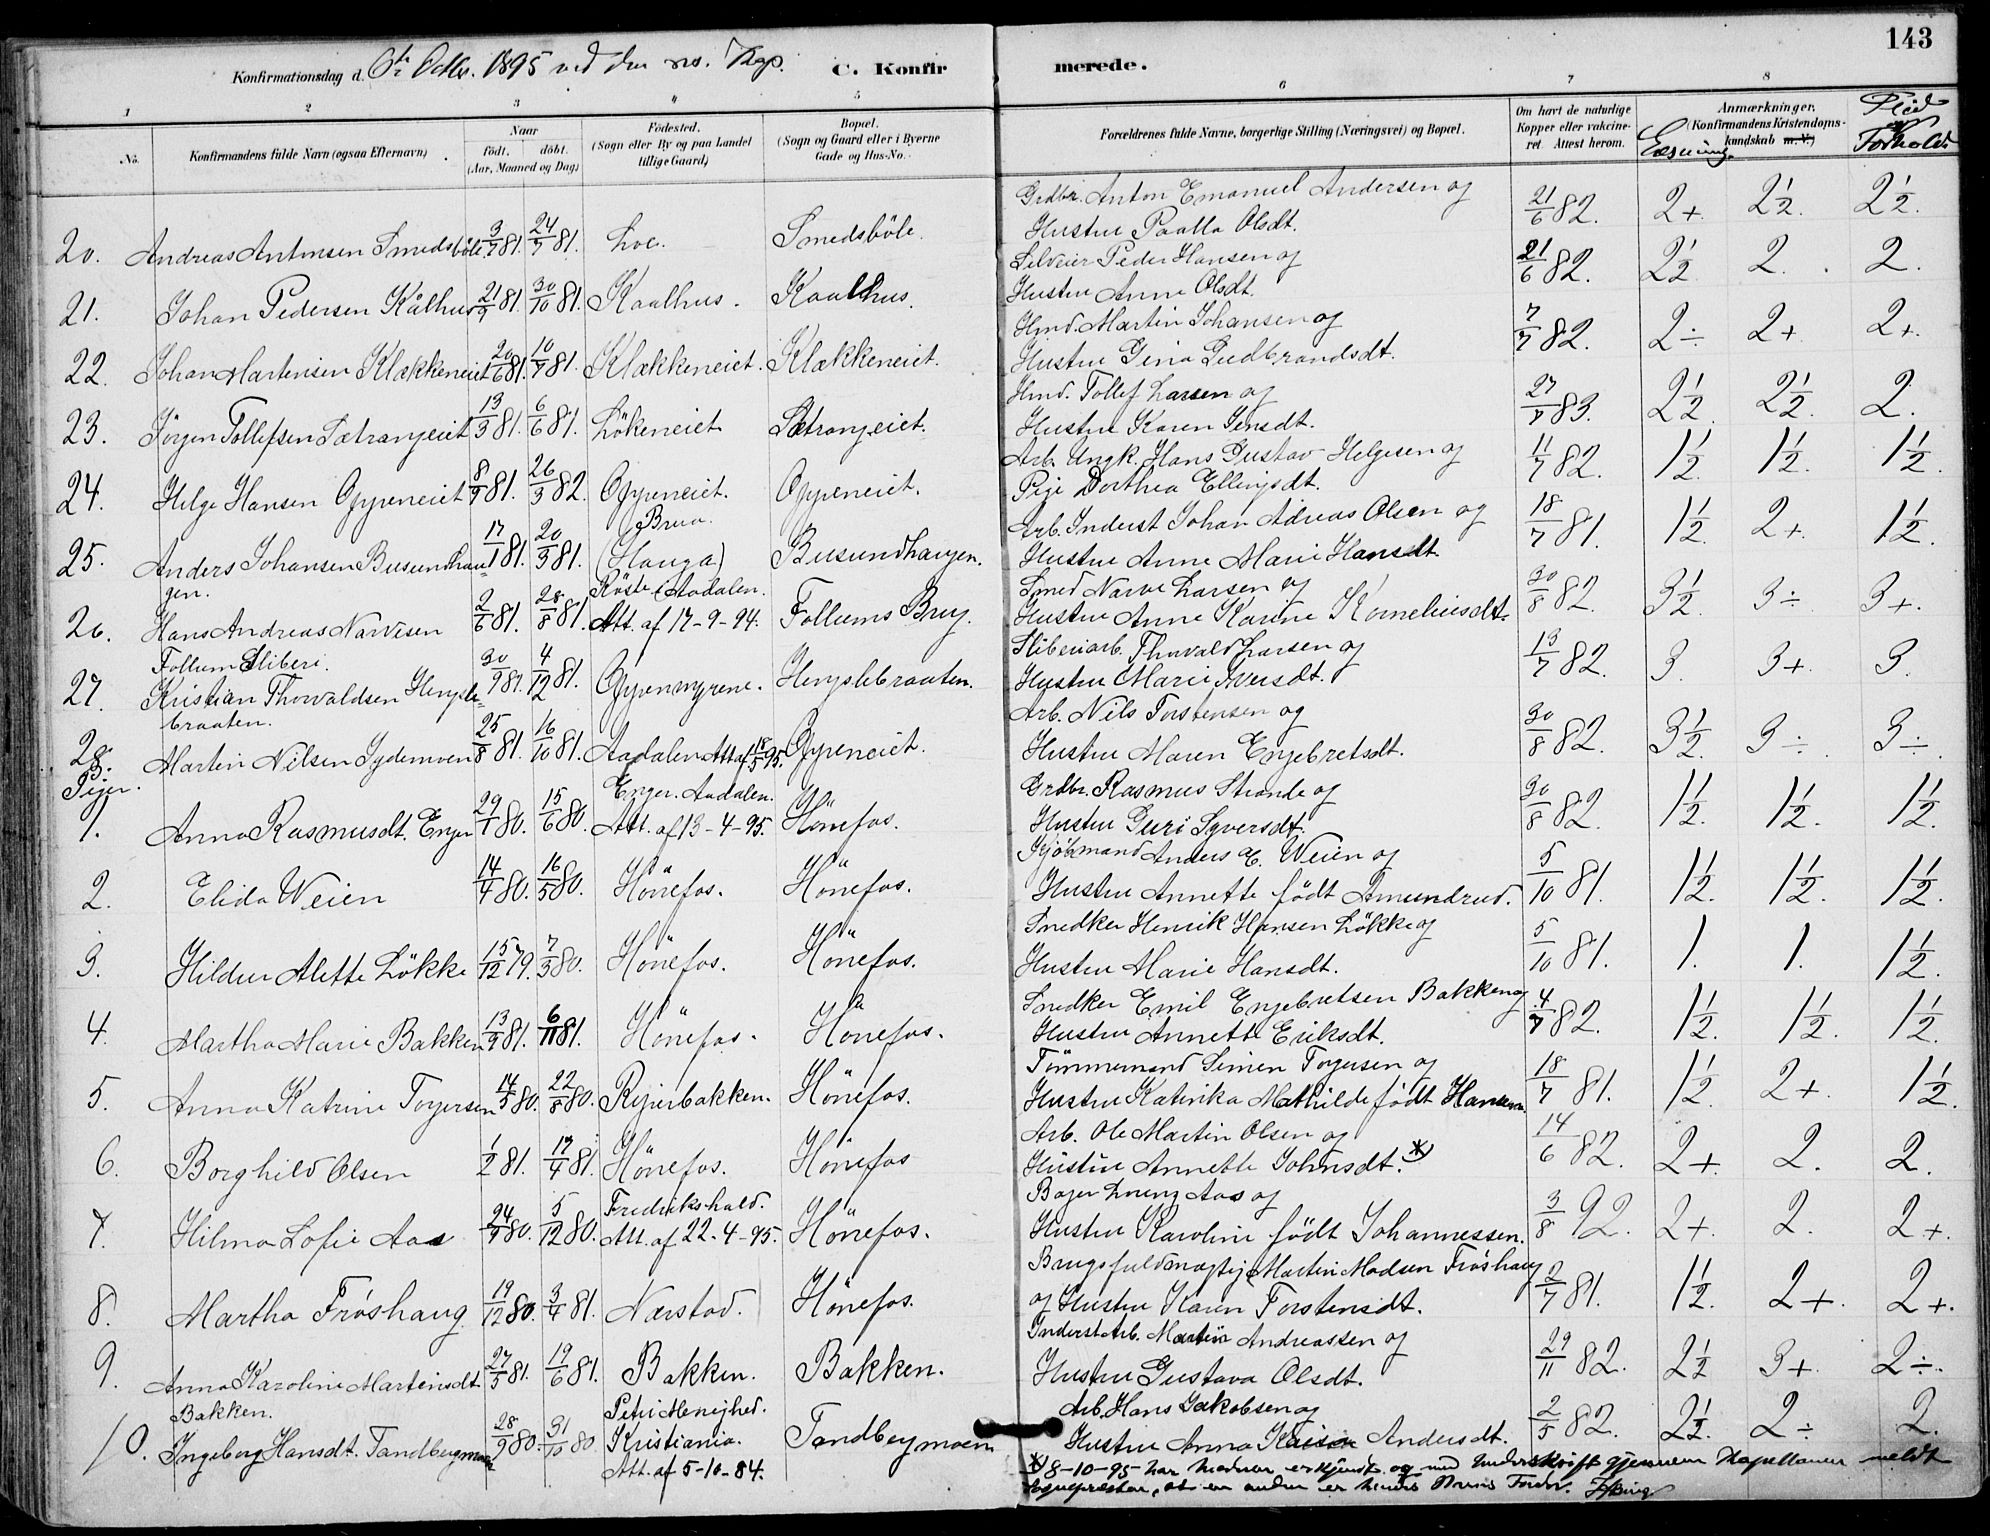 143
Konfirmationsdag d. 6te Octbr. 1895 ved den Kap. C. Konfirmerede.
1 2 3 4 5 6 7 8
No. Konfirmandens fulde Navn (ogsaa Efternavn). Naar født. døbt. (Aar, Maaned og Dag) Fødested. (Sogn eller By og paa Landet tillige Gaard) Bopæl. (Sogn og Gaard eller i Byerne Gade og Hus-No. Forældrenes fulde Navne, borgerlige Stilling (Næringsvei) og Bopæl. Om havt de naturlige Kopper eller vakcineret Attest herom. Anmærkninger. (Konfirmandens Kristendomskundskab m. V.) Læsning. Flid og Forhold.
Grdbr. Anton Emanuel Andersen og
20. Andreas Antonsen Smedsböle 3/7 81. 24/7 81. Loe. Smedsböle. Hustru Paalla Olsdt. 21/6 82. 2+. 2 1/2. 2 1/2.
Selveier Peder Hansen og
21. Johan Pedersen Kålhus 21/9 81. 30/10 81. Kaalhus. Kaalhus. Hustru Anne Olsdt. 21/6 82. 2 1/2. 2. 2.
Hmd. Martin Johansen og
22. Johan Martinsen Klækkeneiet 20/6 81. 10/7 81. Klækkeneiet. Klækkeneiet. Hustru Gina Gudbrandsdt. 7/7 82. 2÷ 2+ 2+.
Hmd. Tollef Larsen og
23. Jörgen Tollefsen Sætrangeiet 13/3 81. 6/6 81. Lökeneiet Sætrangeiet. Hustru Karen Jensdt. 27/7 83. 2 1/2. 2 1/2. 2.
Arb. Ungk. Hans Gustav Helgesen og
24. Helge Hansen Oppeneiet 8/9 81. 26/3 82. Oppeneiet. Oppeneiet. Pige Dorthea Ellingsdt. 11/7 82. 1 1/2. 1 1/2. 1 1/2.
Brua. Arb. Inderst Johan Adreas Olsen og
25. Anders Johansen Busundhau= 17/1 81. 20/3 81. (Hauga) Busundhaugen. Hustru Anne Marie Hansdt 18/7 81. 1 1/2. 2+ 1 1/2.
gen. Röste i Aadalen. Smed Narve Larsen og
26. Hans Andreas Narvesen 2/6 81. 28/8 81. Att. af 17-9-94. Follums Brug. Hustru Anne Karine Korneliusdt. 30/8 82. 3 1/2. 3÷ 3+.
Follum Sliberi. Sliberiarb. Thorvald Larsen og
27. Kristian Thorvaldsen Hengsle= 30/9 81. 4/12 81. Oppenmyrene. Hengslebraaten. Hustru Marie Iversdt. 13/7 82. 3. 3+. 3.
braaten. Arb. Nils Torstensen og
28. Martin Nilsen Sydenmoen 25/8 81. 16/10 81. Aadalen Att af 18/5 95. Oppeneiet. Hustru Maren Engebretsdt. 30/8 82. 3 1/2. 3÷ 3÷
B: Piger. Enger. Aadalen. Grdbr. Rasmus Strande og
1. Anna Rasmusdt. Enger 29/1 80. 15/6 80. Att. af 13-4-95. Hönefos. Hustru Guri Syversdt. 30/8 82. 1 1/2. 1 1/2. 1 1/2.
Kjöbmand Anders E. Weien og
2. Elida Weien 14/4 80. 16/5 80. Hönefos. Hönefos. Hustru Annette født Amundrud. 5/10 81. 1 1/2. 1 1/2. 1 1/2.
Snedker Henrik Hansen Lökke og
3. Hildur Alette Lökke 15/12 79. 7/3 80. Hönefos. Hönefos. Hustru Marie Hansdt. 5/10 81. 1. 1. 1 1/2.
Snedker Emil Engebretsen Bakken og
4. Martha Marie Bakken 13/9 81. 6/11 81. Hönefos. Hönefos. Hustru Annette Eriksdt. 4/7 82. 1 1/2. 1 1/2. 1 1/2.
Tömmermand Simen Torgersen og
5. Anna Katrine Torgersen 14/5 80. 22/8 80. Rejerbakken. Hönefos. Hustru Katinka Mathilde født Hansen. 18/7 81. 1 1/2. 2+ 1 1/2.
Arb. Ole Martin Olsen og
6. Borghild Olsen 1/2 81. 17/4 81. Hönefos. Hönefos Hustru Annette Johnsdt. *) 14/6 82. 2+. 2. 2.
Fredrikshald. Bager Lorenz Aas og
7. Hilma Sofie Aas 24/9 80. 5/12 80. Att. af 22-4-95. Hönefos. Hustru Karoline født Johannessen. 3/8 92. 2+. 2. 2+.
Brugsfuldmægtig Martin Madsen Fröshaug
8. Martha Fröshaug 19/12 80. 3/4 81. Nærstad. Hönefos. og Hustru Karen Torstensdt. 2/7 81. 1 1/2. 2+. 2+.
Inderst Arb. Martin Andreassen og
9. Anna Karoline Martinsdt 27/3 81. 19/6 81. Bakken. Bakken. Hustru Gustava Olsdt. 29/11 82. 2 1/2 3+. 2÷.
Bakken. Petri Menighed. Arb. Hans Jakobsen og
10. Ingeborg Hansdt. Tandbergmoen 28/9 80. 31/10 80. Kristiania. Tandbergmoen Hustru Anna Andersdt. 2/5 82. 2 1/2. 2÷ 2.
Att. af 5-10-84.
*) 8-10-95 har moderen erkjendt og med Underskrift gjennem Kapellanen meldt
Sognepresten, at en anden er hendes Barns Fader.